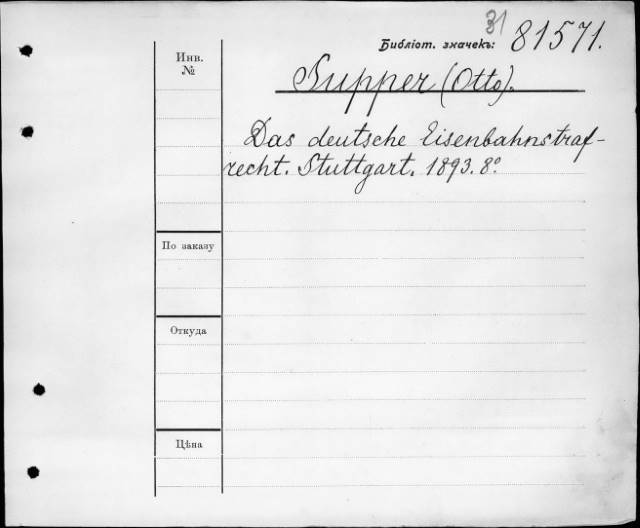 31
Библіот. значекъ: 81571.
Инв.
№
Supper (Otto).
Das deutsche Eisenbahnstraf-
recht. Stuttgart. 1893. 8º.
По заказу
Откуда
Цѣна